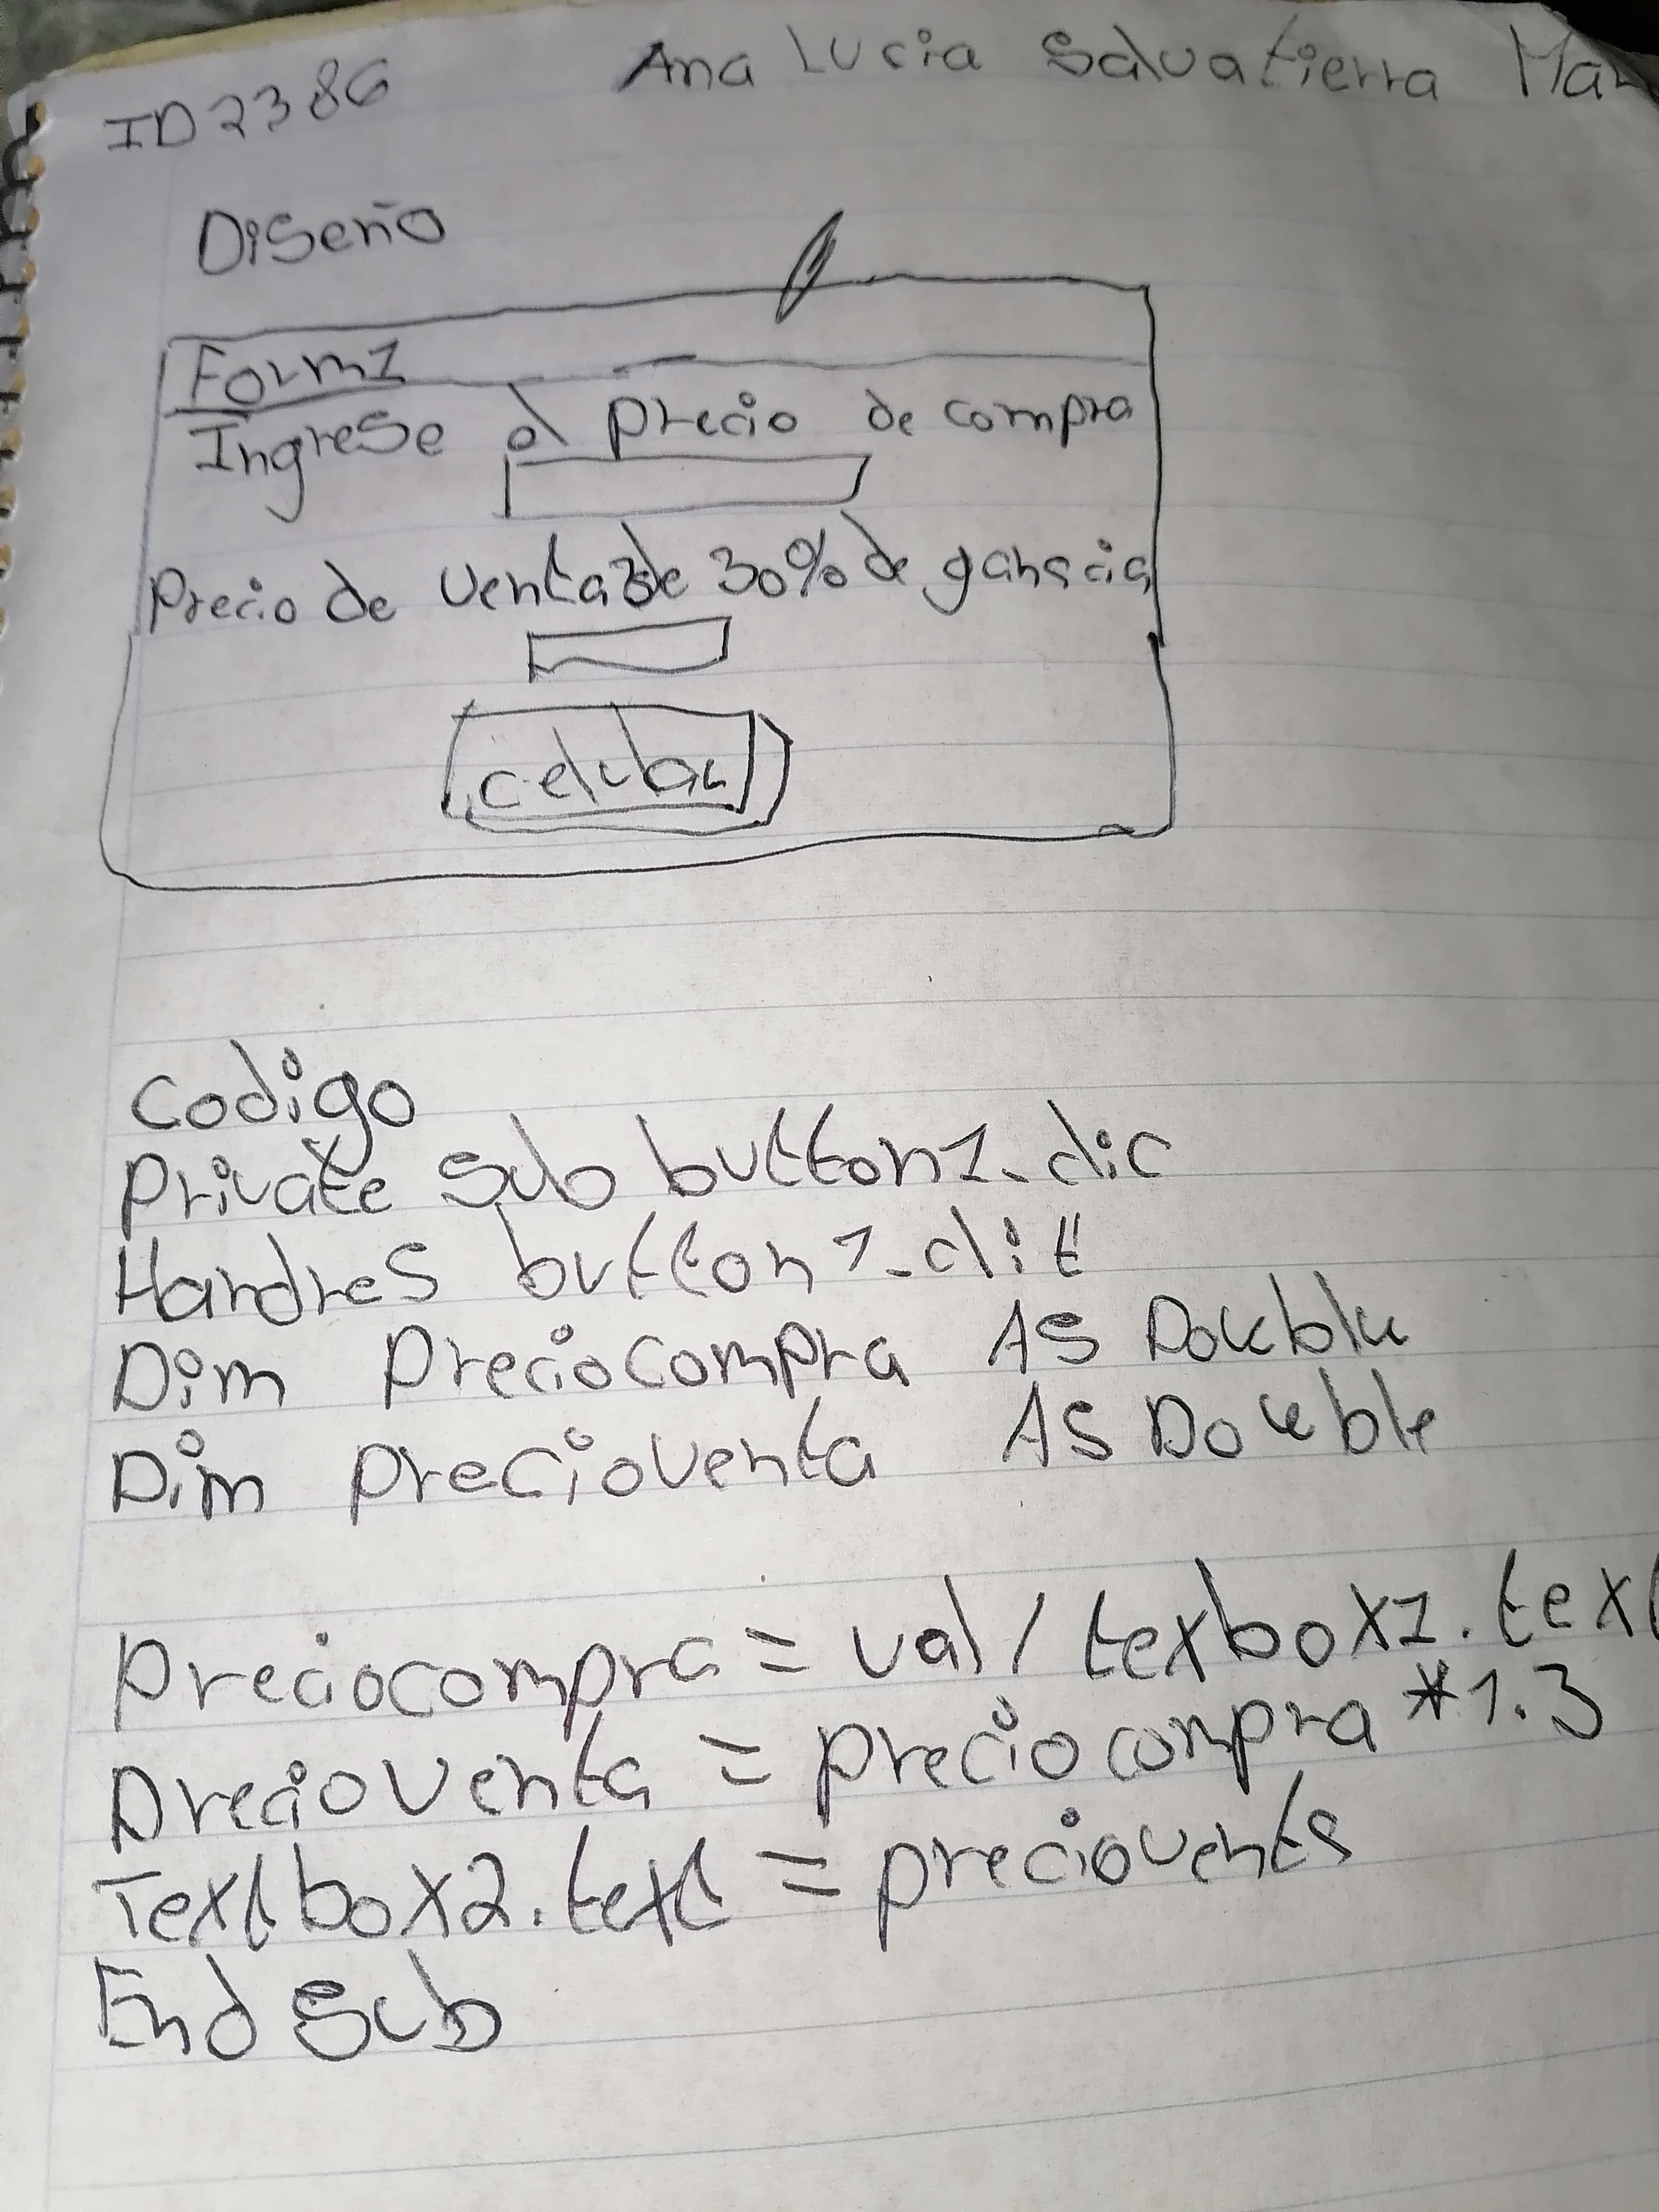 ID2386 Ana Lucia Salvatierra Mar
Diseño
Form1
Ingrese el precio de compra
Precio de venta de 30% de ganacia
celular
Codigo
Private Sub button1-clic
Handres button1-clit
Dim Preciocompra As Double
Dim precioventa As Double
preciocompra = val / texbox1.text
Precioventa = preciocompra *1.3
Textbox2.text = precioventa
End Sub